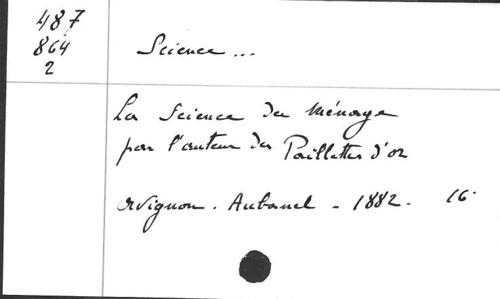 487
864
2
Science ...
La Science du Ménage
par l'auteur des Paillettes d'or
Avignon. Aubanel - 1882. 16°